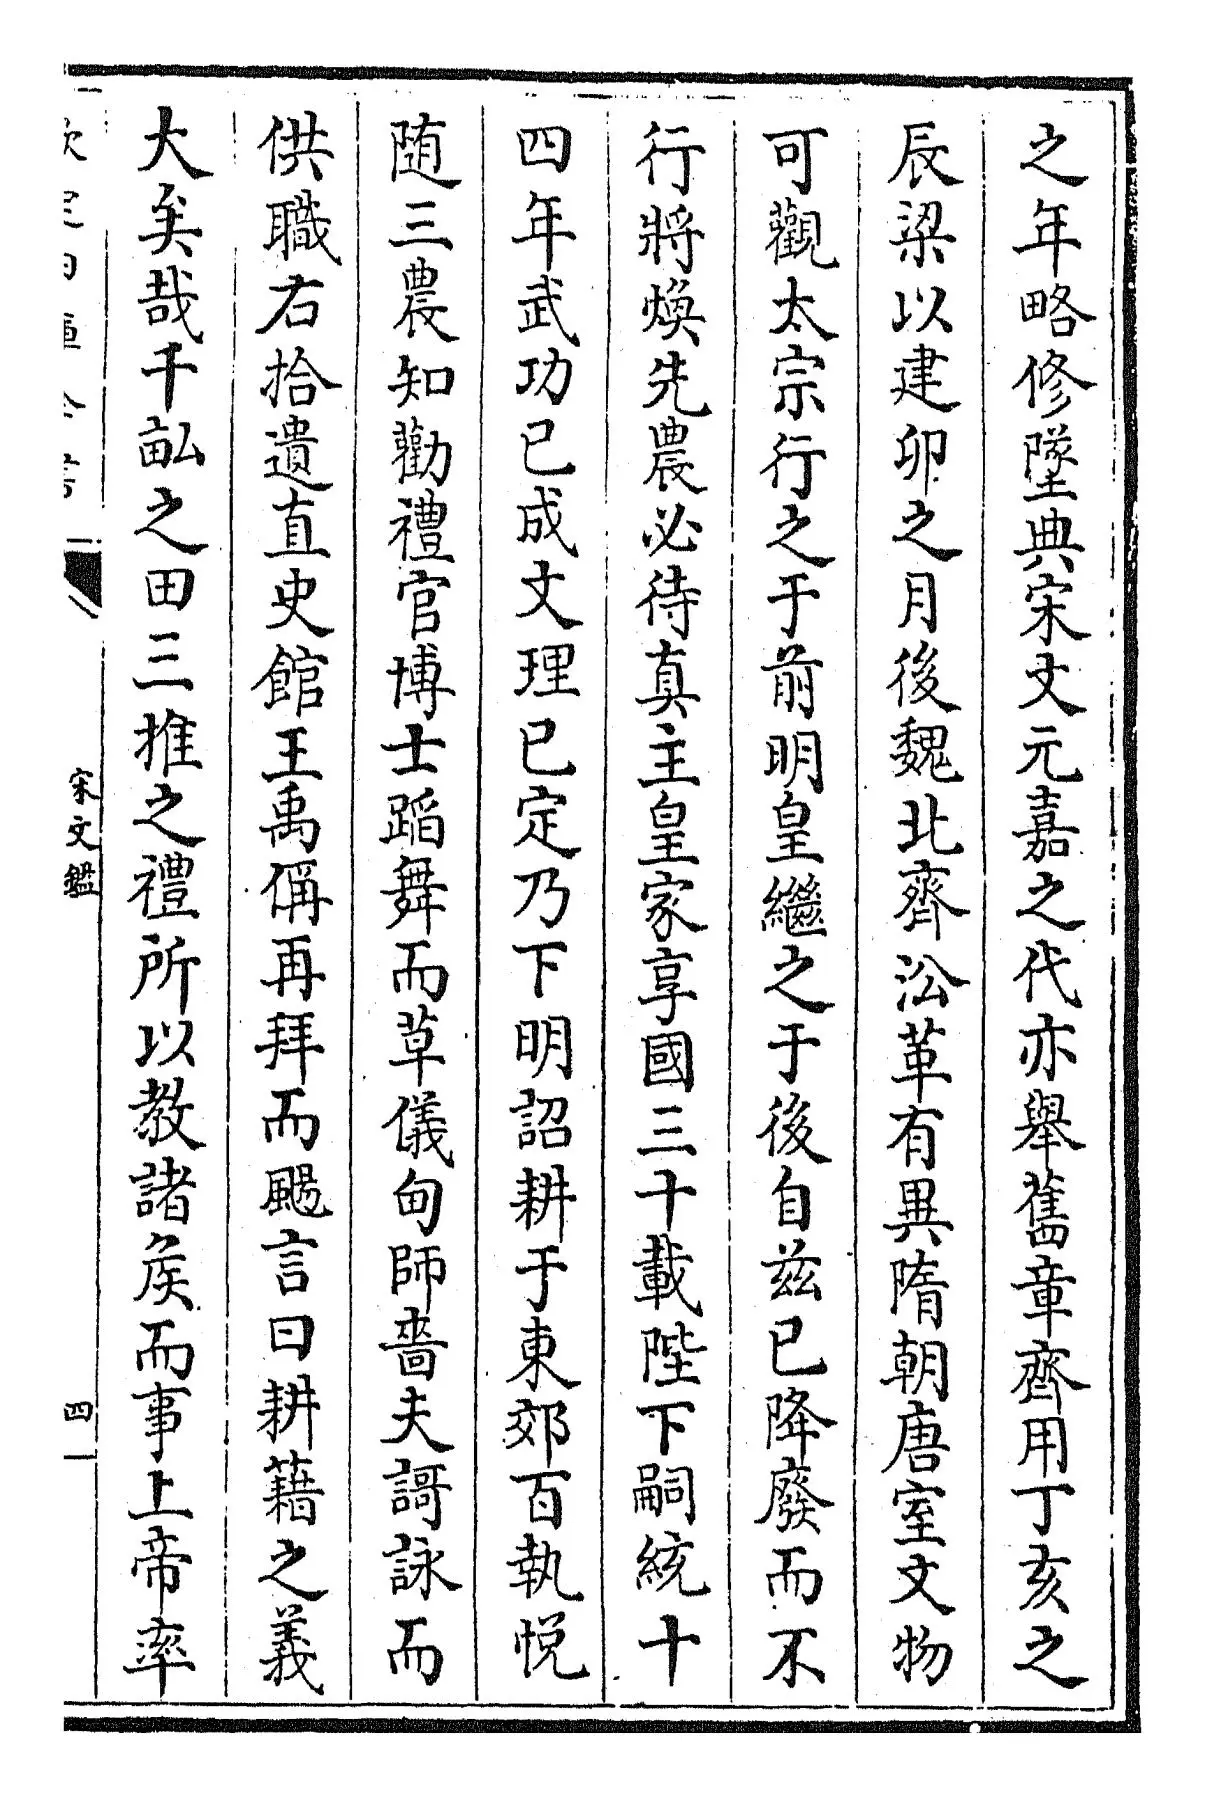 之年略修墜典宋文元嘉之代亦舉舊章齊用丁亥之
辰梁以建卯之月後魏北齊㳂革有異隋朝唐室文物
可觀太宗行之于前明皇繼之于後自兹已降廢而不
行將煥先農必待真主皇家享國三十載陛下嗣統十
四年武功已成文理已定乃下明詔耕于東郊百執悦
随三農知勸禮官博士蹈舞而草儀甸師嗇夫謌詠而
供職右拾遺直史館王禹偁再拜而颺言曰耕藉之義
大矣哉千畝之田三推之禮所以教諸侯而事上帝率
宋文鑑
四